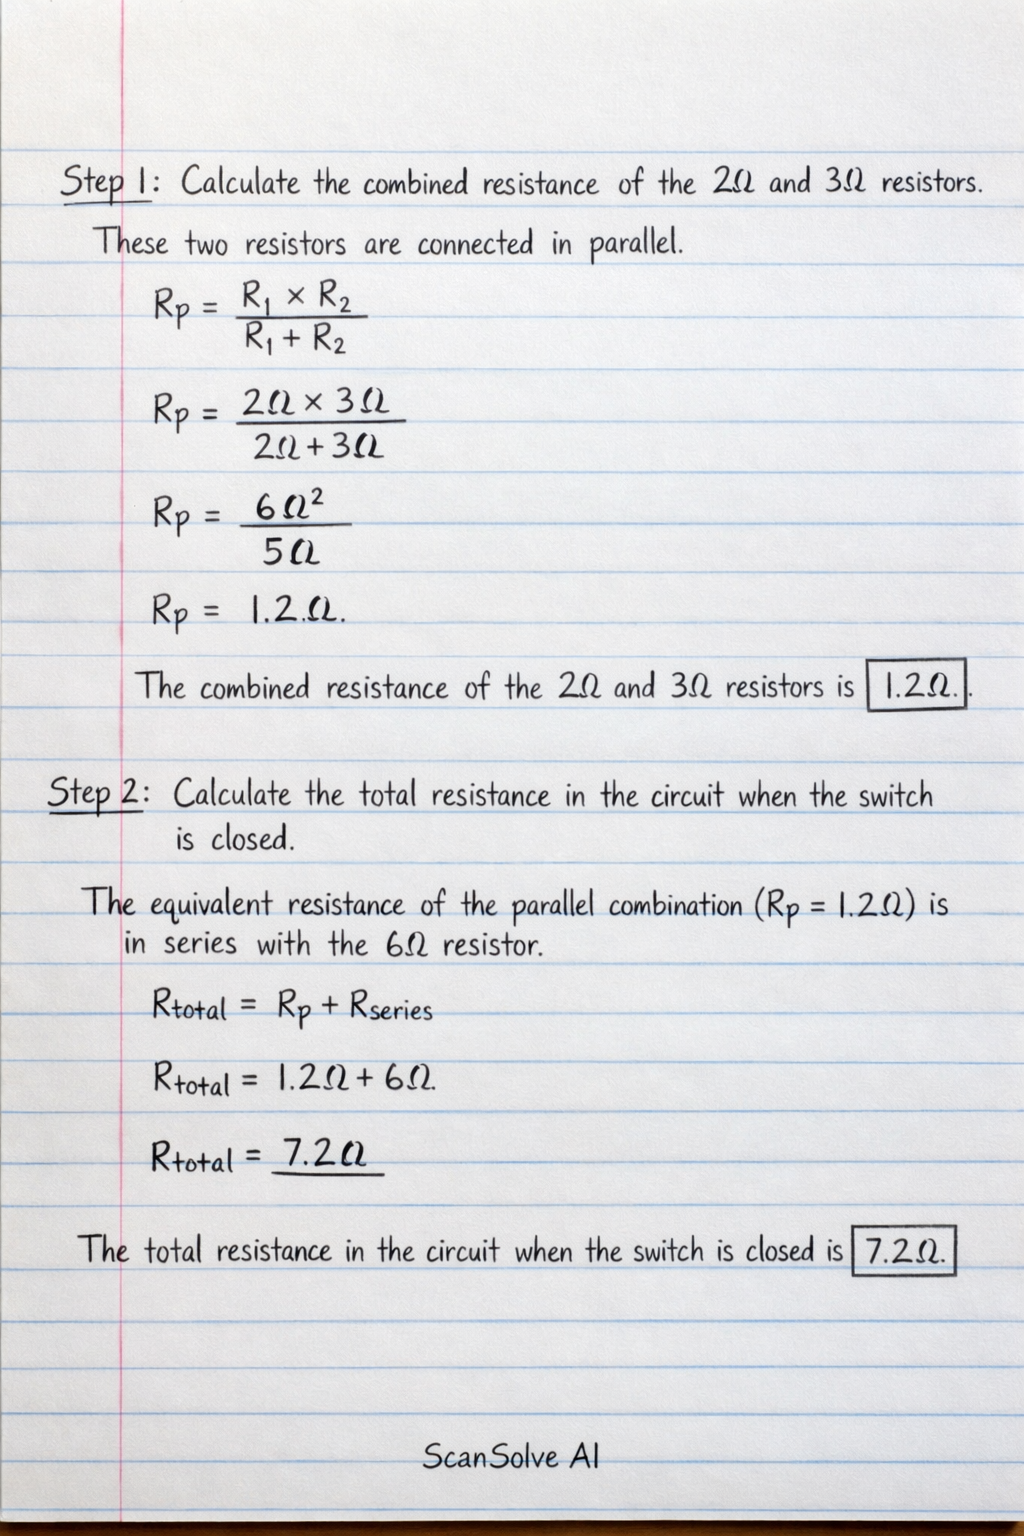 Step 1: Calculate the combined resistance of the 2Ω and 3Ω resistors.
These two resistors are connected in parallel.
Rp = R₁ × R₂
R₁ + R₂
Rp = 2Ω × 3Ω
2Ω + 3Ω
Rp = 6Ω²
5Ω
Rp = 1.2.Ω.
The combined resistance of the 2Ω and 3Ω resistors is 1.2Ω..
Step 2: Calculate the total resistance in the circuit when the switch
is closed.
The equivalent resistance of the parallel combination (Rp = 1.2Ω) is
in series with the 6Ω resistor.
Rtotal = Rp + Rseries
Rtotal = 1.2Ω + 6Ω.
Rtotal = 7.2Ω
The total resistance in the circuit when the switch is closed is 7.2Ω.
ScanSolve AI